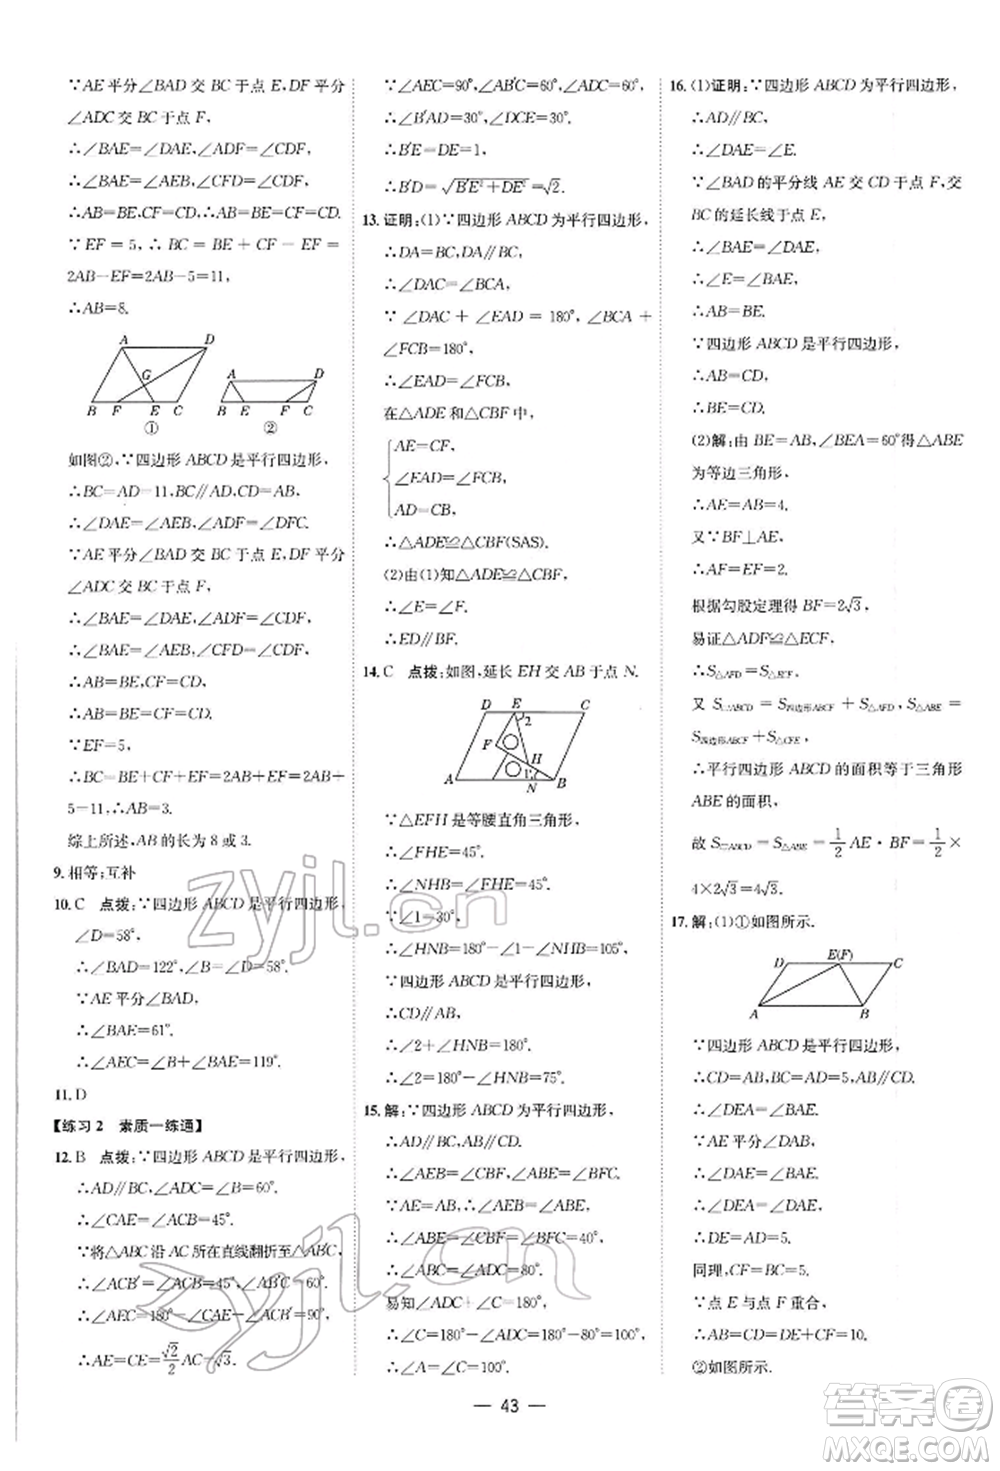 ∵AE平分∠BAD交BC于点E,DF平分
∠ADC交BC于点F,
∴∠BAE=∠DAE,∠ADF=∠CDF,
∴∠BAE=∠AEB,∠CFD=∠CDF,
∴AB=BE,CF=CD.
∵EF=5,∴BC=BE+CF-EF=
2AB-EF=2AB-5=11,
∴AB=8.
A D G B F E C
①
A D B E F C
②
如图②,∵四边形ABCD是平行四边形,
∴BC=AD=11,BC∥AD,CD=AB,
∴∠DAE=∠AEB,∠ADF=∠DFC.
∵AE平分∠BAD交BC于点E,DF平分
∠ADC交BC于点F,
∴∠BAE=∠DAE,∠ADF=∠CDF,
∴∠BAE=∠AEB,∠CFD=∠CDF,
∴AB=BE,CF=CD.
∴AB=BE=CF=CD.
∵EF=5,
∴BC=BE+CF+EF=2AB+EF=2AB+
5=11,∴AB=3.
综上所述,AB的长为8或3.
9.相等;互补
10.C 点拨:∵四边形ABCD是平行四边形,
∠D=58°,
∴∠BAD=122°,∠B=∠D=58°.
∵AE平分∠BAD,
∴∠BAE=61°.
∴∠AEC=∠B+∠BAE=119°.
11.D
【练习2 素质一练通】
12.B 点拨:∵四边形ABCD是平行四边形,
∴AD∥BC,∠ADC=∠B=60°.
∴∠CAE=∠ACB=45°.
∵将△ABC沿AC所在直线翻折至△AB′C,
∴∠ACB′=∠ACB=45°,∠AB′C=60°.
∴∠AEC=180°-∠CAE-∠ACB′=90°,
∴AE=CE=√2/2AC=√3.
∵∠AEC=90°,∠AB′C=60°,∠ADC=60°,
∴∠B′AD=30°,∠DCE=30°.
∴B′E=DE=1,
∴B′D=√(B′E²+DE²)=√2.
13.证明:(1)∵四边形ABCD为平行四边形,
∴DA=BC,DA∥BC,
∴∠DAC=∠BCA,
∵∠DAC+∠EAD=180°,∠BCA+
∠FCB=180°,
∴∠EAD=∠FCB,
在△ADE和△CBF中,
AE=CF,
∠EAD=∠FCB,
AD=CB,
∴△ADE≌△CBF(SAS).
(2)由(1)知△ADE≌△CBF,
∴∠E=∠F.
∴ED∥BF.
14.C 点拨:如图,延长EH交AB于点N.
D E C 2 F H A 1 N B
∵△EFH是等腰直角三角形,
∴∠FHE=45°.
∴∠NHB=∠FHE=45°.
∵∠1=30°,
∴∠HNB=180°-∠1-∠NHB=105°.
∵四边形ABCD是平行四边形,
∴CD∥AB,
∴∠2+∠HNB=180°.
∴∠2=180°-∠HNB=75°.
15.解:∵四边形ABCD为平行四边形,
∴AD∥BC,AB∥CD.
∴∠AEB=∠CBF,∠ABE=∠BFC.
∵AE=AB,∴∠AEB=∠ABE,
∴∠ABE=∠CBF=∠BFC=40°,
∴∠ABC=∠ADC=80°.
易知∠ADC+∠C=180°,
∴∠C=180°-∠ADC=180°-80°=100°.
∴∠A=∠C=100°.
16.(1)证明:∵四边形ABCD为平行四边形,
∴AD∥BC,
∴∠DAE=∠E.
∵∠BAD的平分线AE交CD于点F,交
BC的延长线于点E,
∴∠BAE=∠DAE,
∴∠E=∠BAE,
∴AB=BE.
∵四边形ABCD是平行四边形,
∴AB=CD,
∴BE=CD.
(2)解:由BE=AB,∠BEA=60°得△ABE
为等边三角形,
∴AE=AB=4.
又∵BF⊥AE,
∴AF=EF=2.
根据勾股定理得BF=2√3,
易证△ADF≌△ECF,
∴S△AFD=S△ECF.
又S▱ABCD=S四边形ABCF+S△AFD,S△ABE=
S四边形ABCF+S△CFE,
∴平行四边形ABCD的面积等于三角形
ABE的面积,
故S▱ABCD=S△ABE=1/2AE·BF=1/2×
4×2√3=4√3.
17.解:(1)①如图所示.
D E(F) C A B
∵四边形ABCD是平行四边形,
∴CD=AB,CD∥AB,BC=AD=5,
∴∠DEA=∠EAB,
∵AE平分∠DAB,
∴∠DAE=∠EAB,
∴∠DAE=∠DEA,
∴DE=AD=5.
同理,CF=BC=5.
∵点E与点F重合,
∴AB=CD=DE+CF=10.
②如图所示.
— 43 —
zyjl.cn
zyjl.cn
答案圈
MXQE.COM